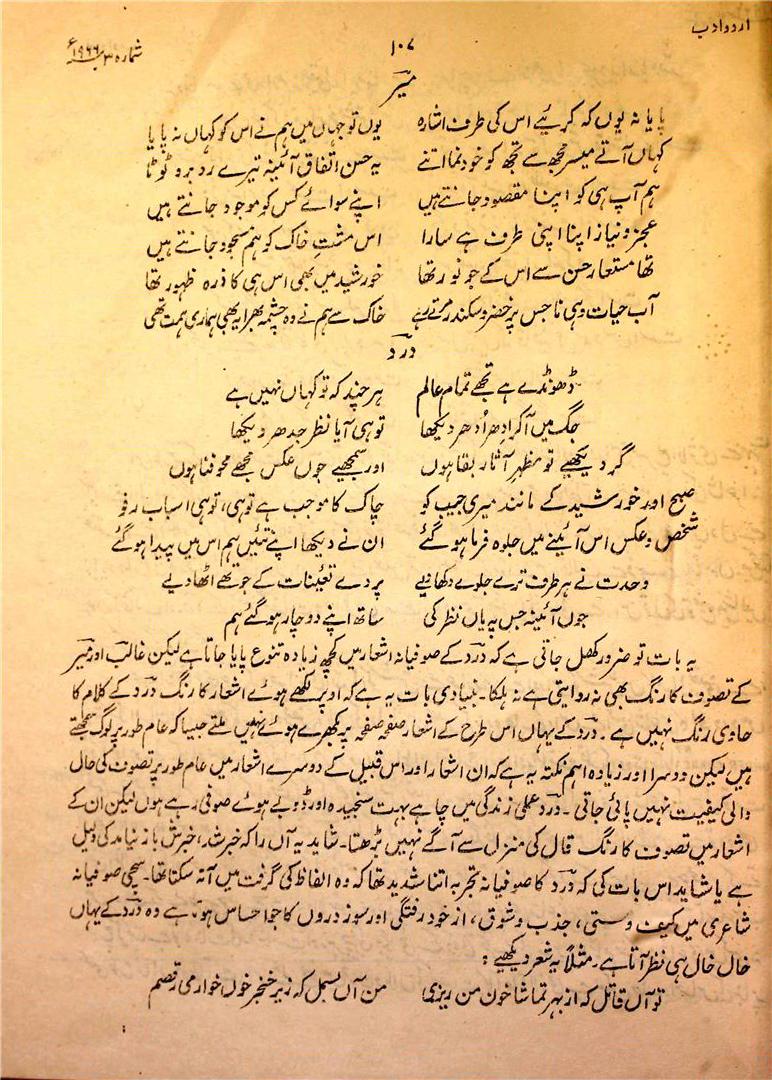 اردو ادب
۱۰۷
شمارہ ۳ ۱۹۶۶ء
میرؔ
پایا نہ یوں کہ کریئے اس کی طرف اشارہ یوں تو جہاں میں ہم نے اس کو کہاں نہ پایا
کہاں آتے میسر تجھ سے تجھ کو خود نما اتنے یہ حسن اتفاق آئینہ تیرے رو برو ٹوٹا
ہم آپ ہی کو اپنا مقصود جانتے ہیں اپنے سوائے کس کو موجود جانتے ہیں
عجز و نیاز اپنا اپنی طرف ہے سارا اس مشتِ خاک کو ہم مسجود جانتے ہیں
تھا مستعار حسن سے اس کے جو نور تھا خورشید میں بھی اس ہی کا ذرہ ظہور تھا
آب حیات وہی نا جس پر خضر و سکندر مرتے رہے خاک سے ہم نے وہ چشمہ بھرا یہ بھی ہماری ہمت تھی
دردؔ
ڈھونڈے ہے تجھے تمام عالم ہر چند کہ تو کہاں نہیں ہے
جگ میں آکر اِدھر اُدھر دیکھا تو ہی آیا نظر جدھر دیکھا
گر دیکھیے تو مظہرِ آثار بقا ہوں اور سمجھیے جوں عکس مجھے محو فنا ہوں
صبح اور خورشید کے مانند میری جیب کو چاک کا موجب ہے تو ہی، تو ہی اسباب رفو
شخص و عکس اس آئینے میں جلوہ فرما ہو گئے ان نے دیکھا اپنے تئیں ہم اس میں پیدا ہو گئے
وحدت نے ہر طرف ترے جلوے دکھا دیے پردے تعینات کے جو تھے اٹھا دیے
جوں آئینہ جس پہ یاں نظر کی ساتھ اپنے دو چار ہو گئے ہم
یہ بات تو ضرور کھل جاتی ہے کہ دردؔ کے صوفیانہ اشعار میں کچھ زیادہ تنوع پایا جاتا ہے لیکن غالبؔ اور میرؔ
کے تصوف کا رنگ بھی نہ روایتی ہے نہ ہلکا۔ بنیادی بات یہ ہے کہ اوپر لکھے ہوئے اشعار کا رنگ دردؔ کے کلام کا
حاوی رنگ نہیں ہے۔ دردؔ کے یہاں اس طرح کے اشعار صفحہ صفحہ پر بکھرے ہوئے نہیں ملتے جیسا کہ عام طور پر لوگ سمجھتے
ہیں لیکن دوسرا اور زیادہ اہم نکتہ یہ ہے کہ ان اشعار اور اس قبیل کے دوسرے اشعار میں عام طور پر تصوف کی حال
والی کیفیت نہیں پائی جاتی۔ دردؔ عملی زندگی میں چاہے بہت سنجیدہ اور ڈوبے ہوئے صوفی رہے ہوں لیکن ان کے
اشعار میں تصوف کا رنگ قال کی منزل سے آگے نہیں بڑھتا۔ شاید یہ آں را کہ خبر شد، خبرش باز نیامد کی دلیل
ہے یا شاید اس بات کی کہ دردؔ کا صوفیانہ تجربہ اتنا شدید تھا کہ وہ الفاظ کی گرفت میں آ نہ سکتا تھا۔ سچی صوفیانہ
شاعری میں کیف و مستی، جذب و شوق، از خود رفتگی اور سوز دروں کا جو احساس ہوتا ہے وہ دردؔ کے یہاں
خال خال ہی نظر آتا ہے۔ مثلاً یہ شعر دیکھیے:
تو آں قاتل کہ از بہر تماشا خون من ریزی من آں بسمل کہ زیر خنجر خوں خوار می رقصم